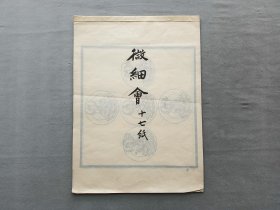 微細會
十七紙